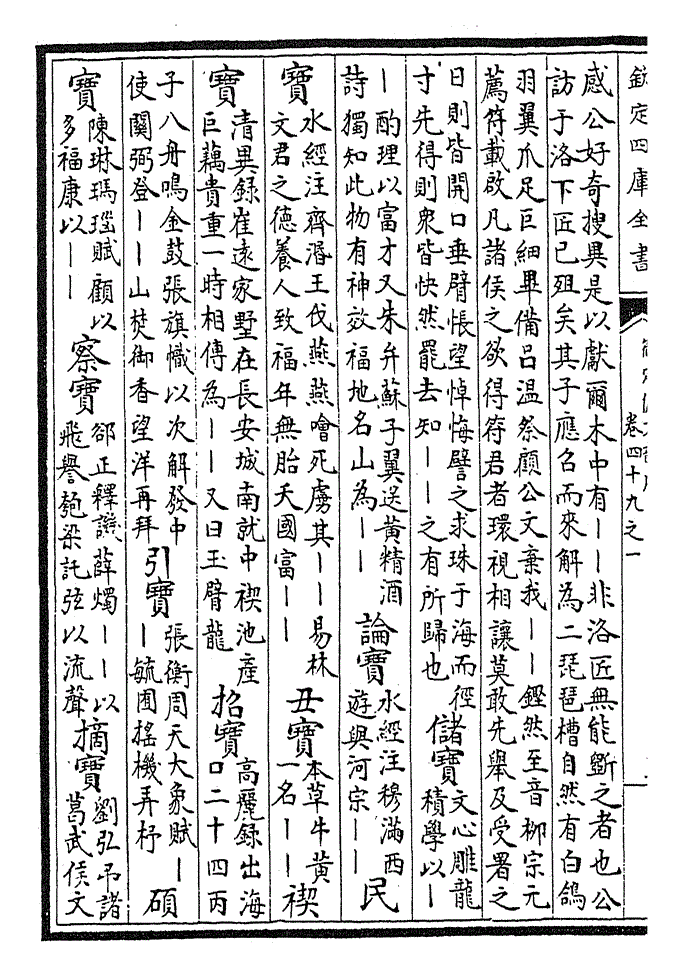 欽定四庫全書
卷四十九之一
感公好奇搜異是以獻爾木中有——非洛匠無能斲之者也公
訪于洛下匠已殂矣其子應召而來解為二琵琶槽自然有白鴿
羽翼爪足巨細畢備吕温祭顧公文棄我——鏗然至音柳宗元
薦符載啟凡諸侯之欲得符君者環視相讓莫敢先舉及受署之
日則皆開口垂臂悵望悼悔譬之求珠于海而徑
寸先得則衆皆快然罷去知——之有所歸也
儲寶
文心雕龍
積學以—
—酌理以富才又朱弁蘇子翼送黄精酒
詩獨知此物有神效福地名山為——
論寶
水經注穆滿西
遊與河宗——
民
寶
水經注齊湣王伐燕燕噲死虜其——易林
文君之德養人致福年無胎夭國富——
丑寶
本草牛黄
一名——
禊
寶
清異録崔遠家墅在長安城南就中禊池產
巨藕貴重一時相傳為——又曰玉臂龍
招寶
高麗録出海
口二十四丙
子八舟鳴金鼓張旗幟以次解發中
使關弼登——山焚御香望洋再拜
引寶
張衡周天大象賦—
—毓囿摇機弄杼
碩
寶
陳琳瑪瑙賦顧以
多福康以——
察寶
郤正釋譏薛燭——以
飛譽瓠梁託弦以流聲
摘寶
劉弘弔諸
葛武侯文